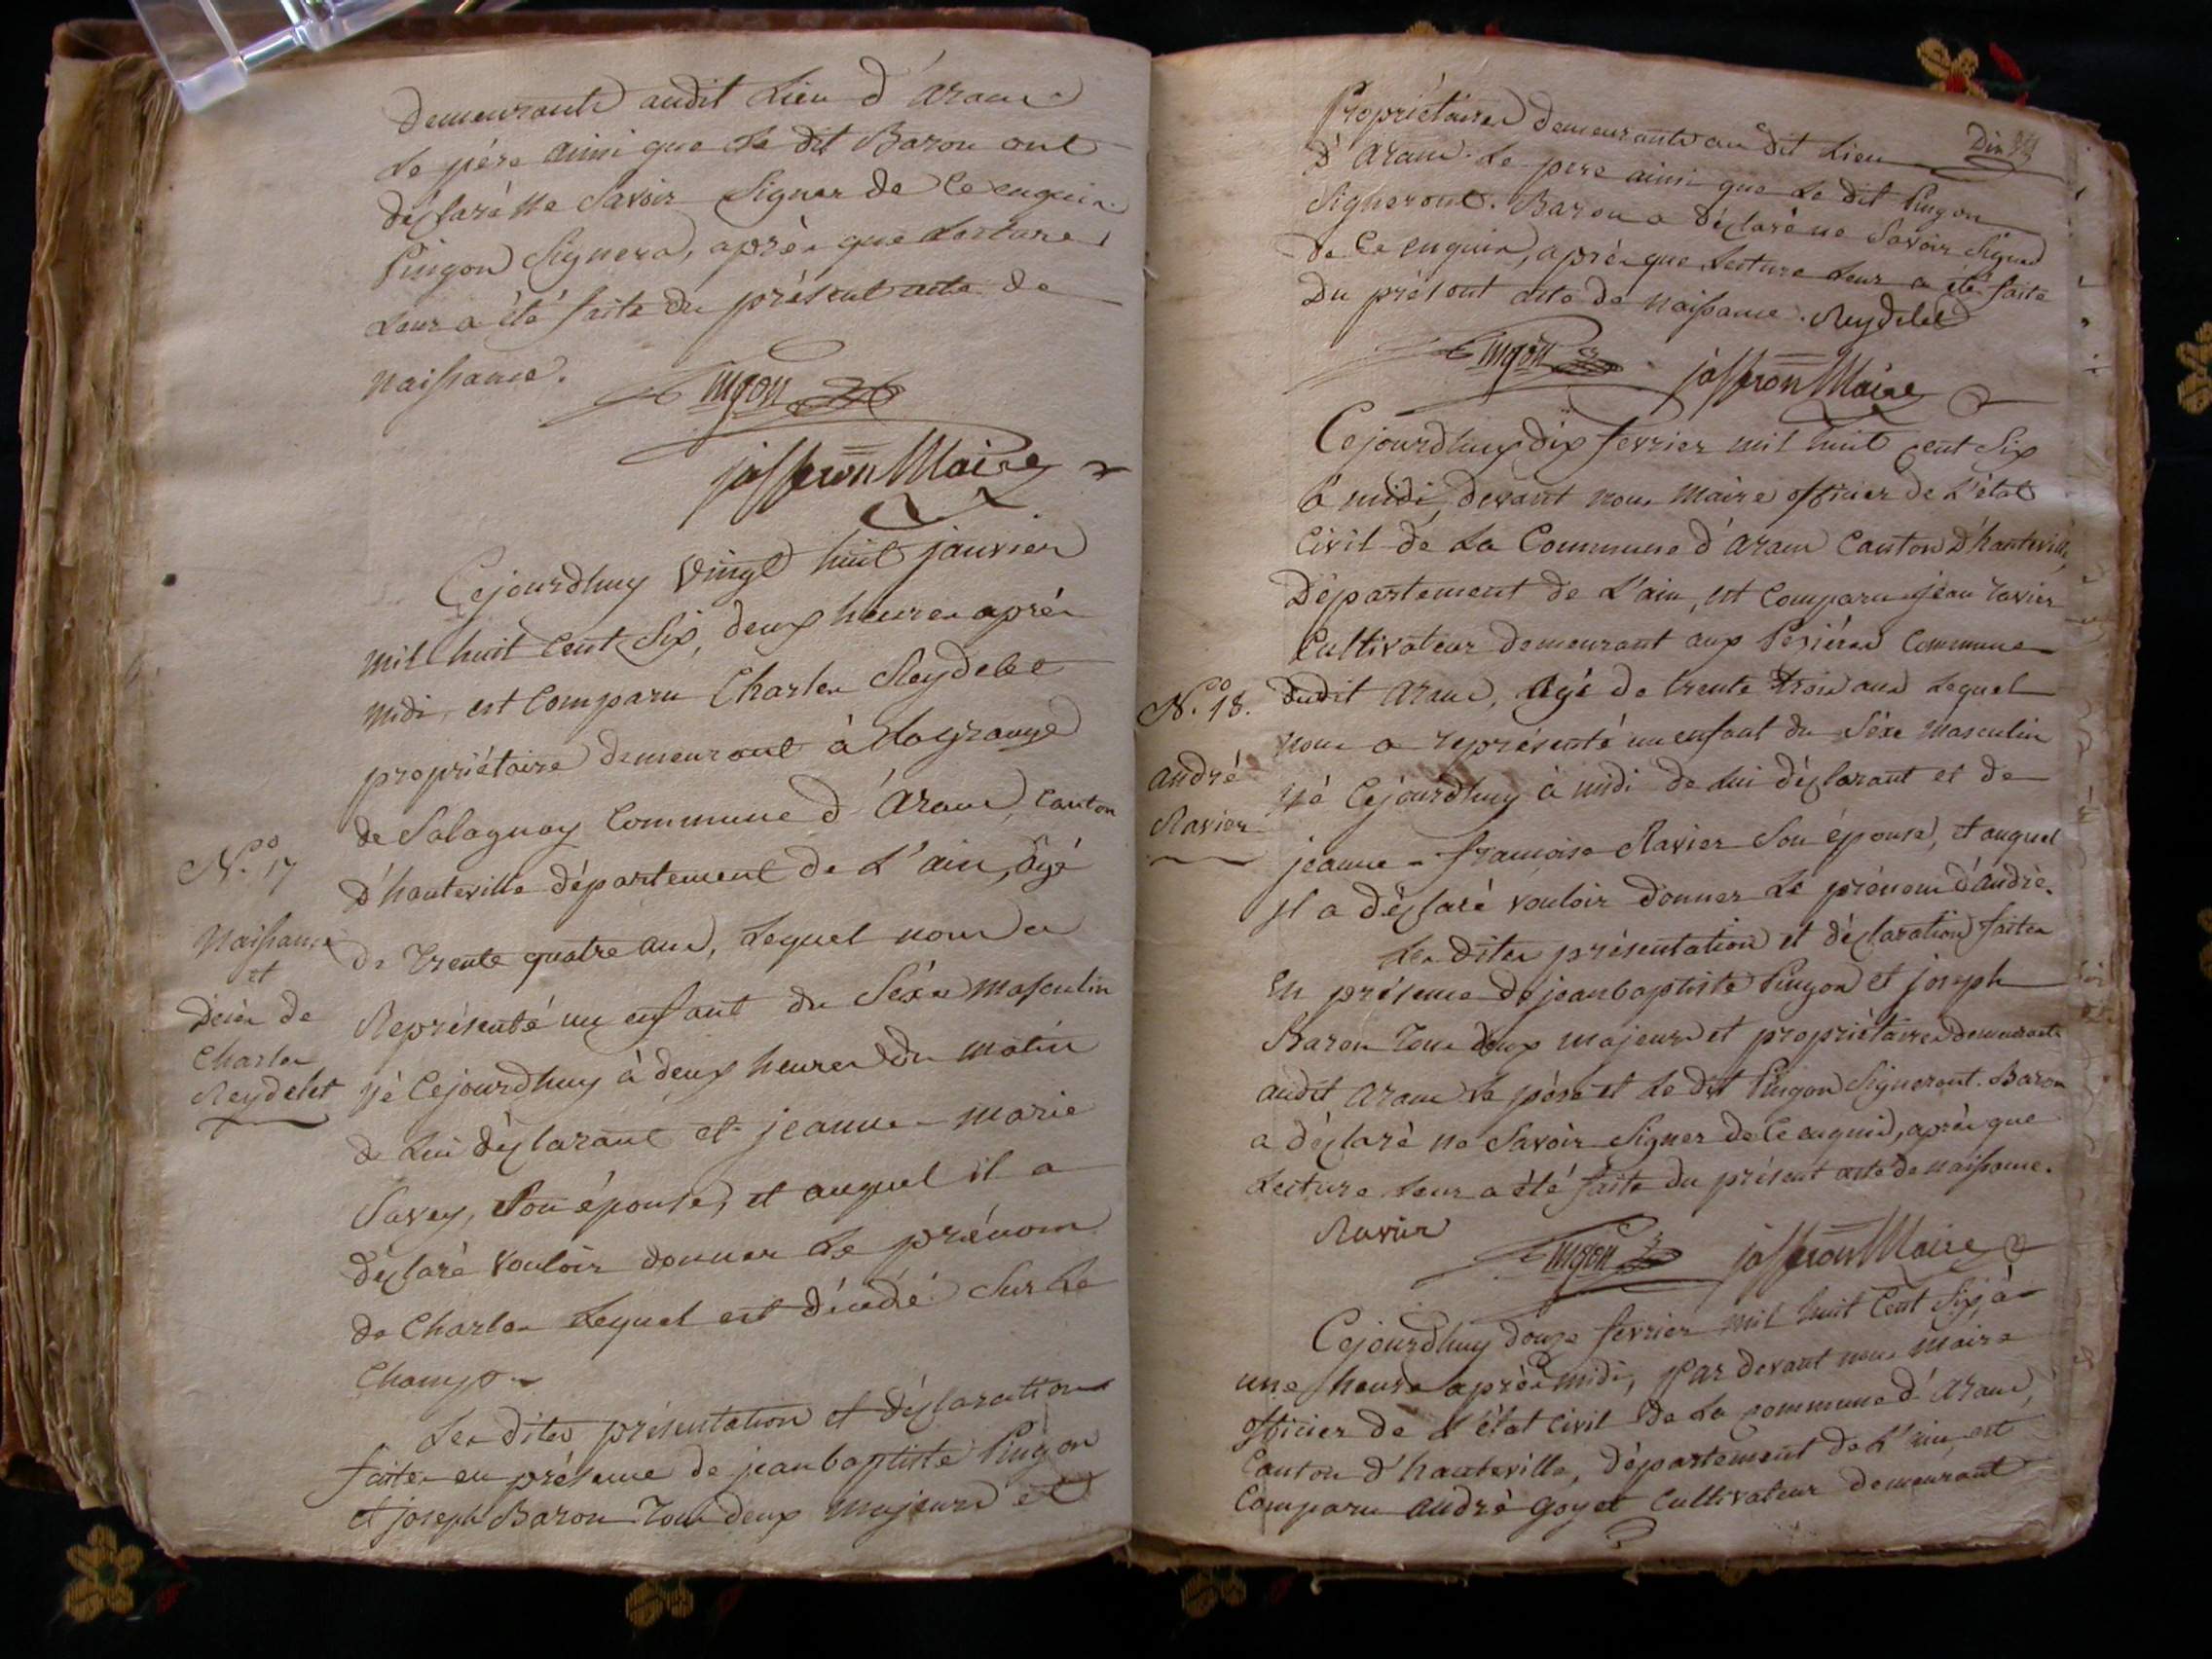 demeurants audit Lieu d'Aranc
Le père ainsi que Le dit Baron ont
déclaré ne Savoir Signer de Ce enquis.
Pingon Signera, après que Lecture
Leur a été faite du présent acte de
naissance.
Pingon
joffron Maire
Cejourdhuy vingt huit janvier
mil huit Cent Six, deux heures après
midi, est Comparu Charles Reydelet
propriétaire demeurant à Lagrange
de Solagnay Commune d'Aranc, Canton
d'hauteville département de L'ain, âgé
de trente quatre ans, Lequel nous a
Représenté un enfant du Séxe masculin
né Cejourdhuy à deux heures du matin
de Lui déclarant et jeanne-marie
Savey, Son épouse, et auquel il a
déclaré vouloir donner Le prénom
de Charles Lequel est décédé Sur Le
Champ.
Les dites présentation et déclaration
faites en présence de jeanbaptiste Pingon
et joseph Baron Tous deux majeurs et
N.º 17
Naissance
et
décès de
Charles
Reydelet
Propriétaires demeurants au dit Lieu
d'Aranc. Le pere ainsi que Le dit Pingon
Signeront. Baron a déclaré ne Savoir Signer
de Ce enquis, après que Lecture Leur a été faite
Du présent acte de naissance. Reydelet
Pingon joffron Maire
Cejourdhuy dix fevrier mil huit cent Six
à midi, devant nous Maire officier de L'état
Civil de La Commune d'Aranc Canton D'hauteville,
Département de L'ain, est Comparu jean ravier
Cultivateur demeurant aux Pézières Commune
dudit Aranc, Agé de trente trois ans Lequel
nous a représenté un enfant du Séxe masculin
Né Cejourdhuy à midi de Lui déclarant et de
jeanne-françoise Ravier Son épouse, et auquel
il a déclaré vouloir donner Le prénom d'andré.
Les dites présentation et déclaration faites
En présence de jeanbaptiste Pingon et joseph
Baron Tous deux majeurs et propriétaires demeurants
audit Aranc Le père et Le dit Pingon Signeront. Baron
a déclaré ne Savoir Signer de Ce enquis, après que
Lecture Leur a été faite du présent acte de naissance.
Ravier Pingon joffron Maire
Cejourdhuy douze fevrier mil huit Cent Six, à
une heure après midi, Par devant nous maire
officier de L'état Civil de La commune d'Aranc,
Canton d'hauteville, Département de L'ain, est
Comparu andré goyet Cultivateur demeurant
N.º 18.
André
Ravier